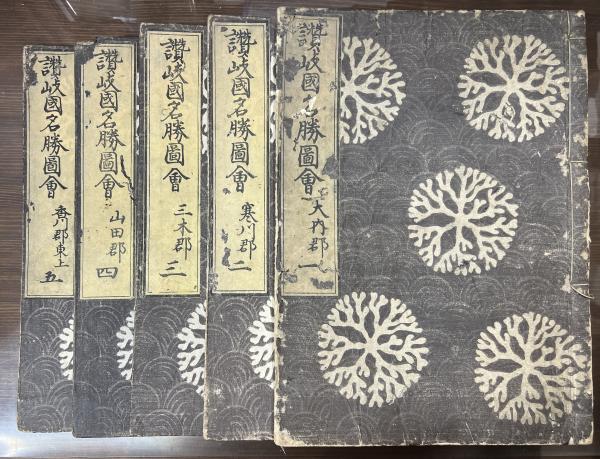 讃岐國名勝圖會
大内郡 一
讃岐國名勝圖會
寒川郡 二
讃岐國名勝圖會
三木郡 三
讃岐國名勝圖會
山田郡 四
讃岐國名勝圖會
香川郡東上 五